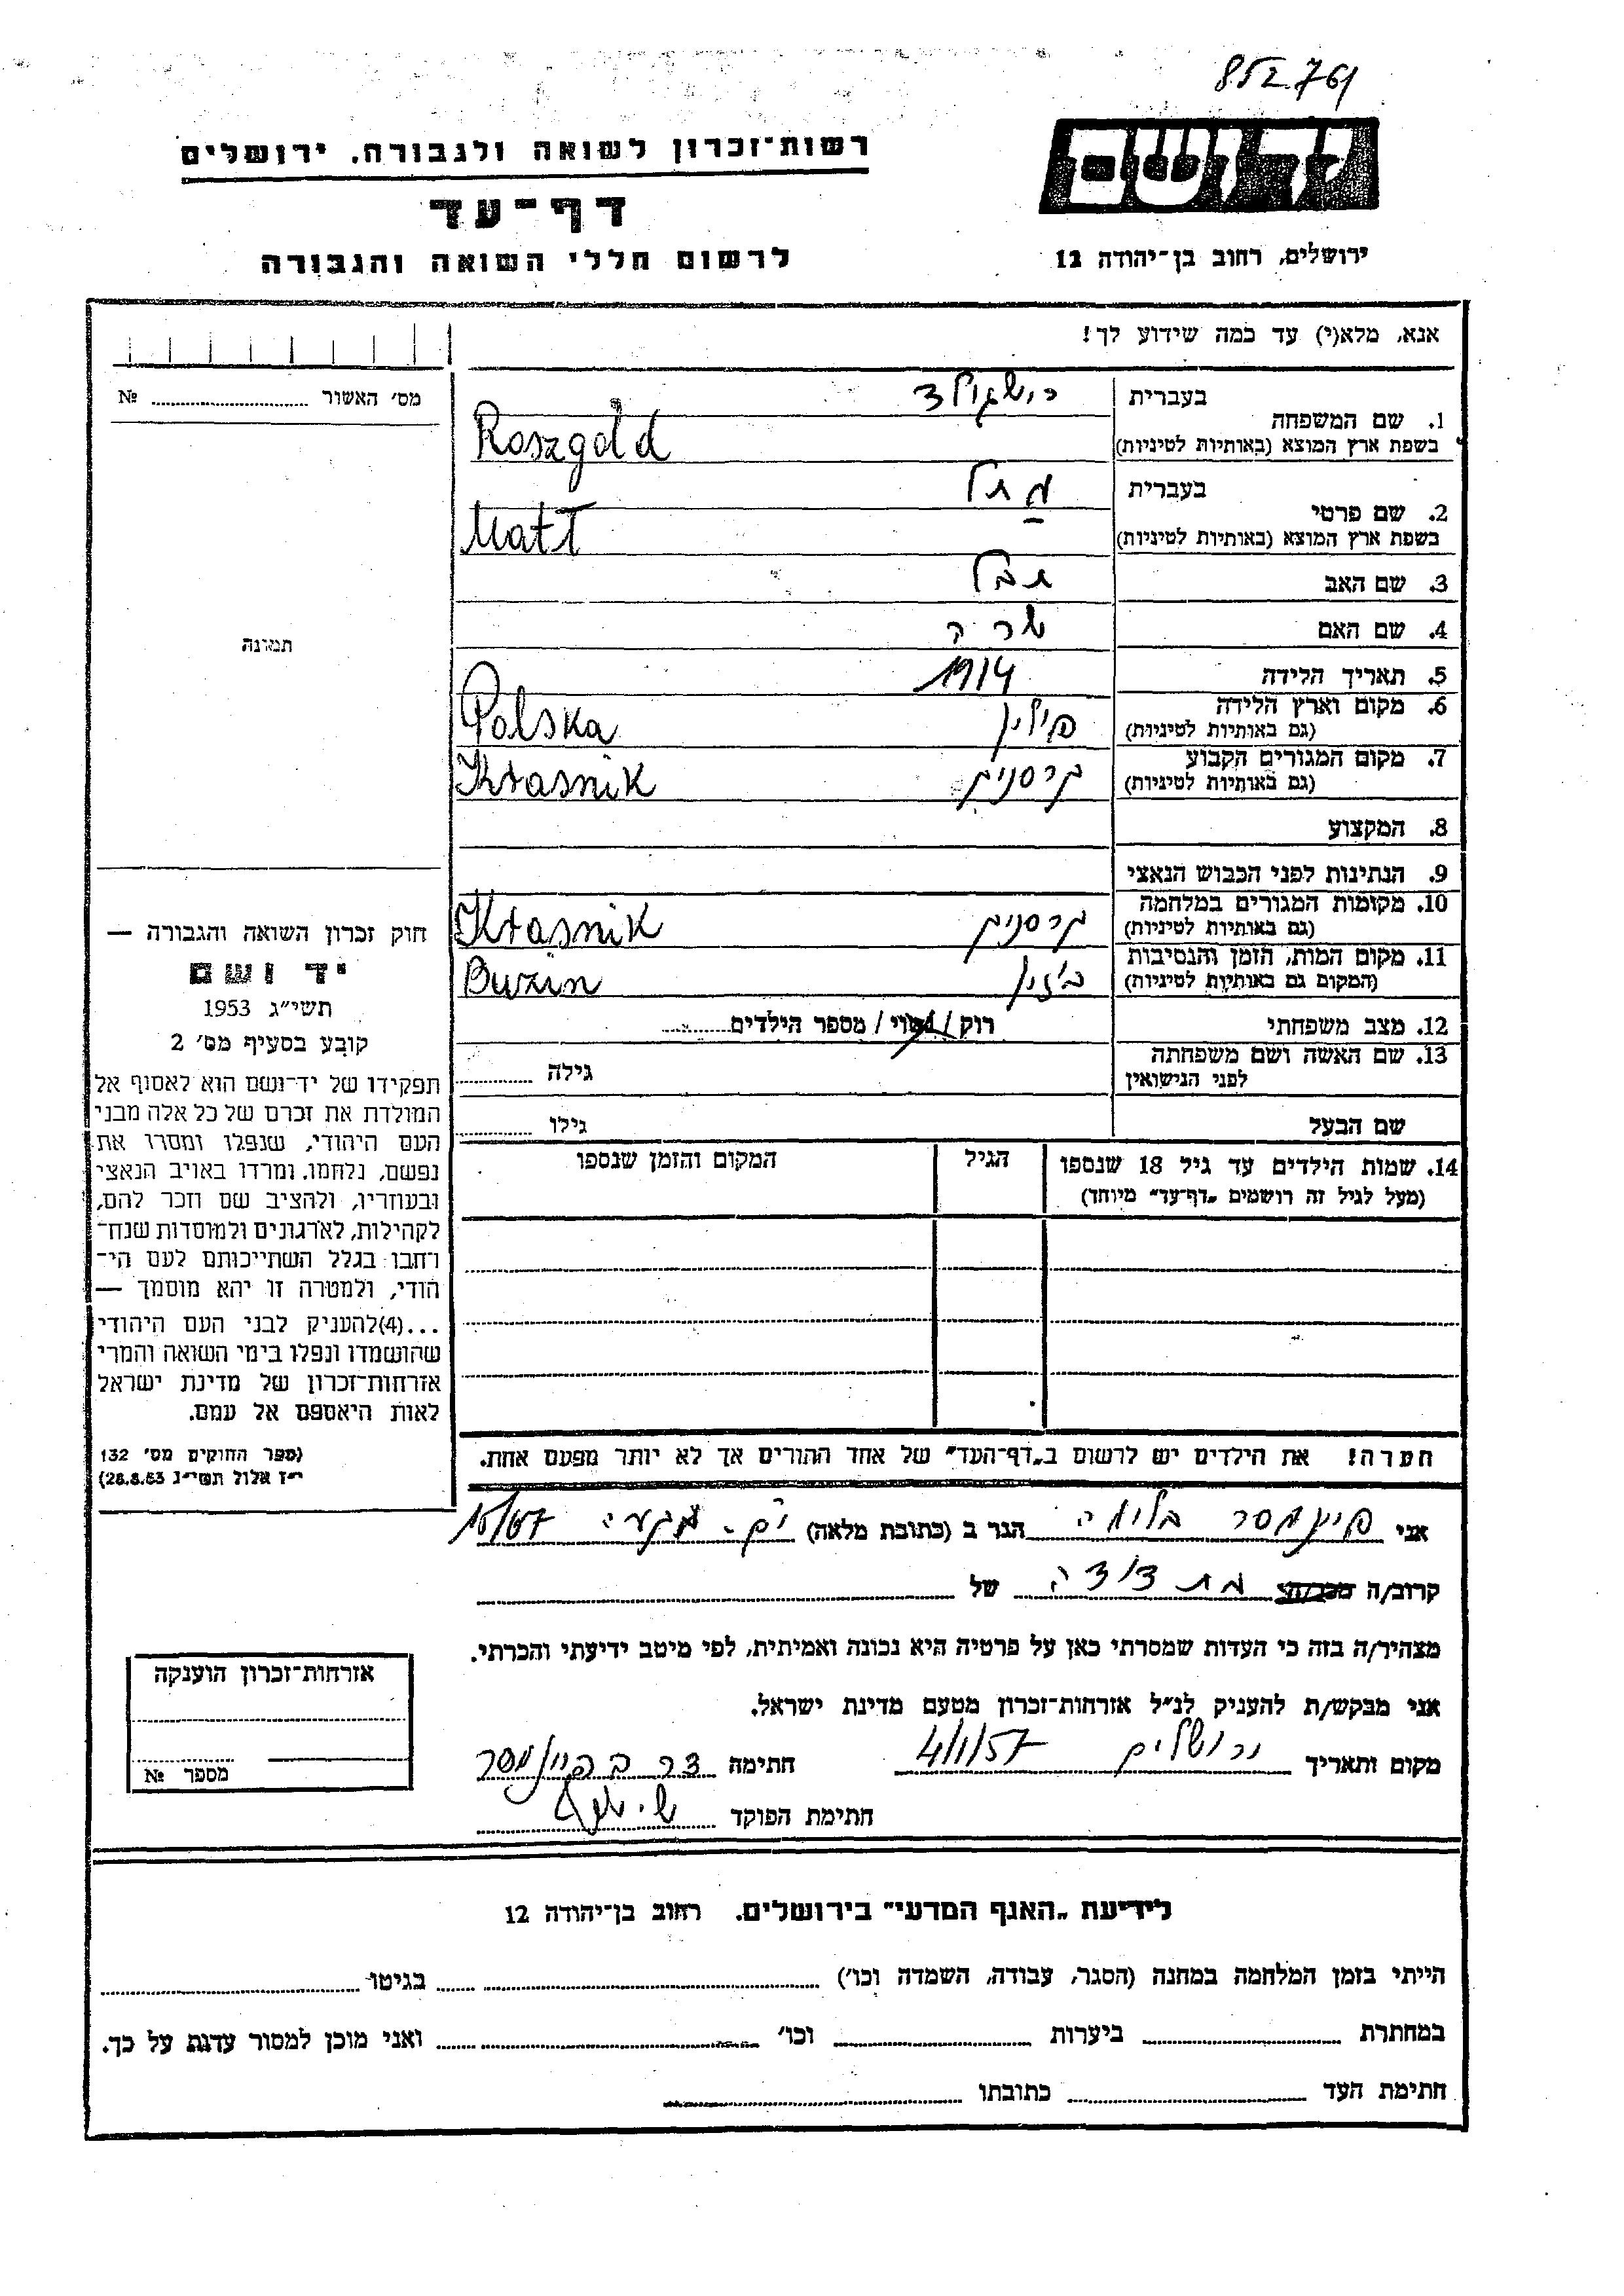 רשות־זכרון לשואה ולגבורה. ירושלים
דף־עד
לרשום חללי השואה והגבורה
יד ושם
ירושלים, רחוב בן־יהודה 12
אנא, מלא(י) עד כמה שידוע לך!
מס׳ האשור № 
1. שם המשפחה
בעברית רוזגולד
בשפת ארץ המוצא (באותיות לטיניות) Roszgold
2. שם פרטי
בעברית מתל
בשפת ארץ המוצא (באותיות לטיניות) Matl
3. שם האב
4. שם האם שרה
5. תאריך הלידה 1914
6. מקום וארץ הלידה פולין Polska
(גם באותיות לטיניות)
7. מקום המגורים הקבוע קרסניק Krasnik
(גם באותיות לטיניות)
8. המקצוע
9. הנתינות לפני הכבוש הנאצי
10. מקומות המגורים במלחמה קרסניק Krasnik
(גם באותיות לטיניות)
11. מקום המות, הזמן והנסיבות Buzin
(המקום גם באותיות לטיניות)
12. מצב משפחתי רוק / נשוי / מספר הילדים
13. שם האשה ושם משפחתה גילה
לפני הנישואין
שם הבעל גילו
14. שמות הילדים עד גיל 18 שנספו הגיל המקום והזמן שנספו
(מעל לגיל זה רושמים „דף־עד״ מיוחד)
הערה! את הילדים יש לרשום ב„דף־העד״ של אחד ההורים אך לא יותר מפעם אחת.
תמונה
חוק זכרון השואה והגבורה —
יד ושם
תשי״ג 1953
קובע בסעיף מס׳ 2
תפקידו של יד־ושם הוא לאסוף אל
המולדת את זכרם של כל אלה מבני
העם היהודי, שנפלו ומסרו את
נפשם, נלחמו, ומרדו באויב הנאצי
ובעוזריו, ולהציב שם וזכר להם,
לקהילות, לארגונים ולמוסדות שנח־
רחבו בגלל השתייכותם לעם הי־
הודי, ולמטרה זו יהא מוסמך —
...(4)להעניק לבני העם היהודי
שהושמדו ונפלו בימי השואה והמרי
אזרחות־זכרון של מדינת ישראל
לאות היאספם אל עמם.
(ספר החוקים מס׳ 132
י״ז אלול תשי״ג 28.8.53)
אני פיינמסר בלומה הגר ב (כתובת מלאה)
קרוב/ה בת דודה של
מצהיר/ה בזה כי העדות שמסרתי כאן על פרטיה היא נכונה ואמיתית, לפי מיטב ידיעתי והכרתי.
אני מבקש/ת להעניק לנ״ל אזרחות־זכרון מטעם מדינת ישראל.
מקום ותאריך ירושלים 4/1/57 חתימה
חתימת הפוקד
אזרחות־זכרון הוענקה
מספר №
לידיעת „האגף המדעי״ בירושלים. רחוב בן־יהודה 12
הייתי בזמן המלחמה במחנה (הסגר, עבודה, השמדה וכו׳) בגיטו
במחתרת ביערות וכו׳ ואני מוכן למסור עדות על כך.
חתימת העד כתובתו